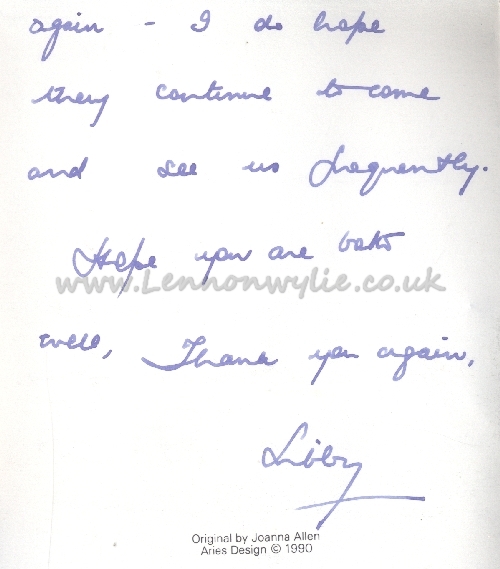 again - I do hope
they continue to come
and see us frequently.
Hope you are both
www.Lennonwylie.co.uk
well, Thank you again,
Libby
Original by Joanna Allen
Aries Design © 1990